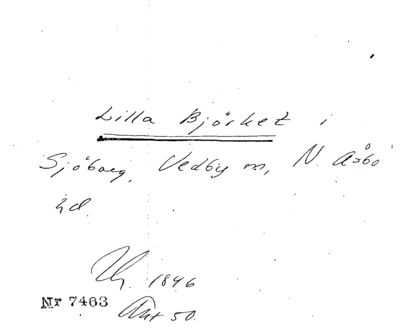 Lilla Björket i
Sjöborg, Vedby sn, N. Åsbo
hd.
1846
Nr 7463
Ant 50.